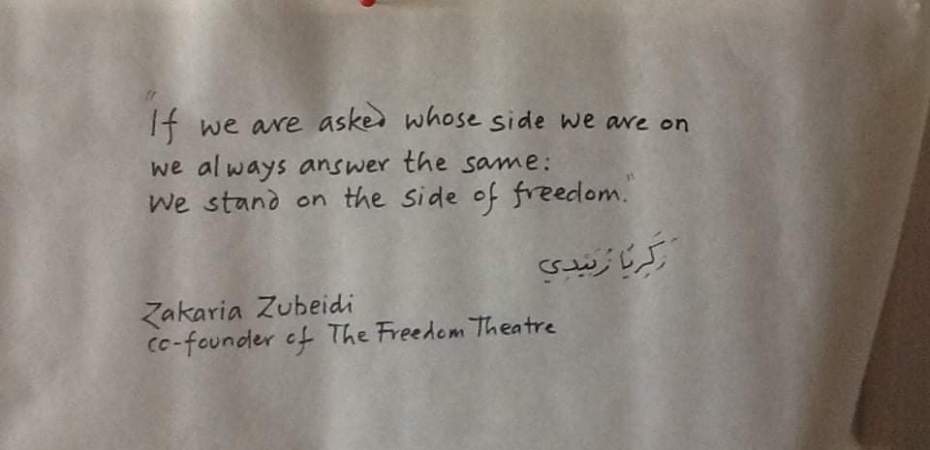 "If we are asked whose side we are on
we always answer the same:
We stand on the side of freedom."
زَكَرِيَّا زُبَيْدِي
Zakaria Zubeidi
co-founder of The Freedom Theatre